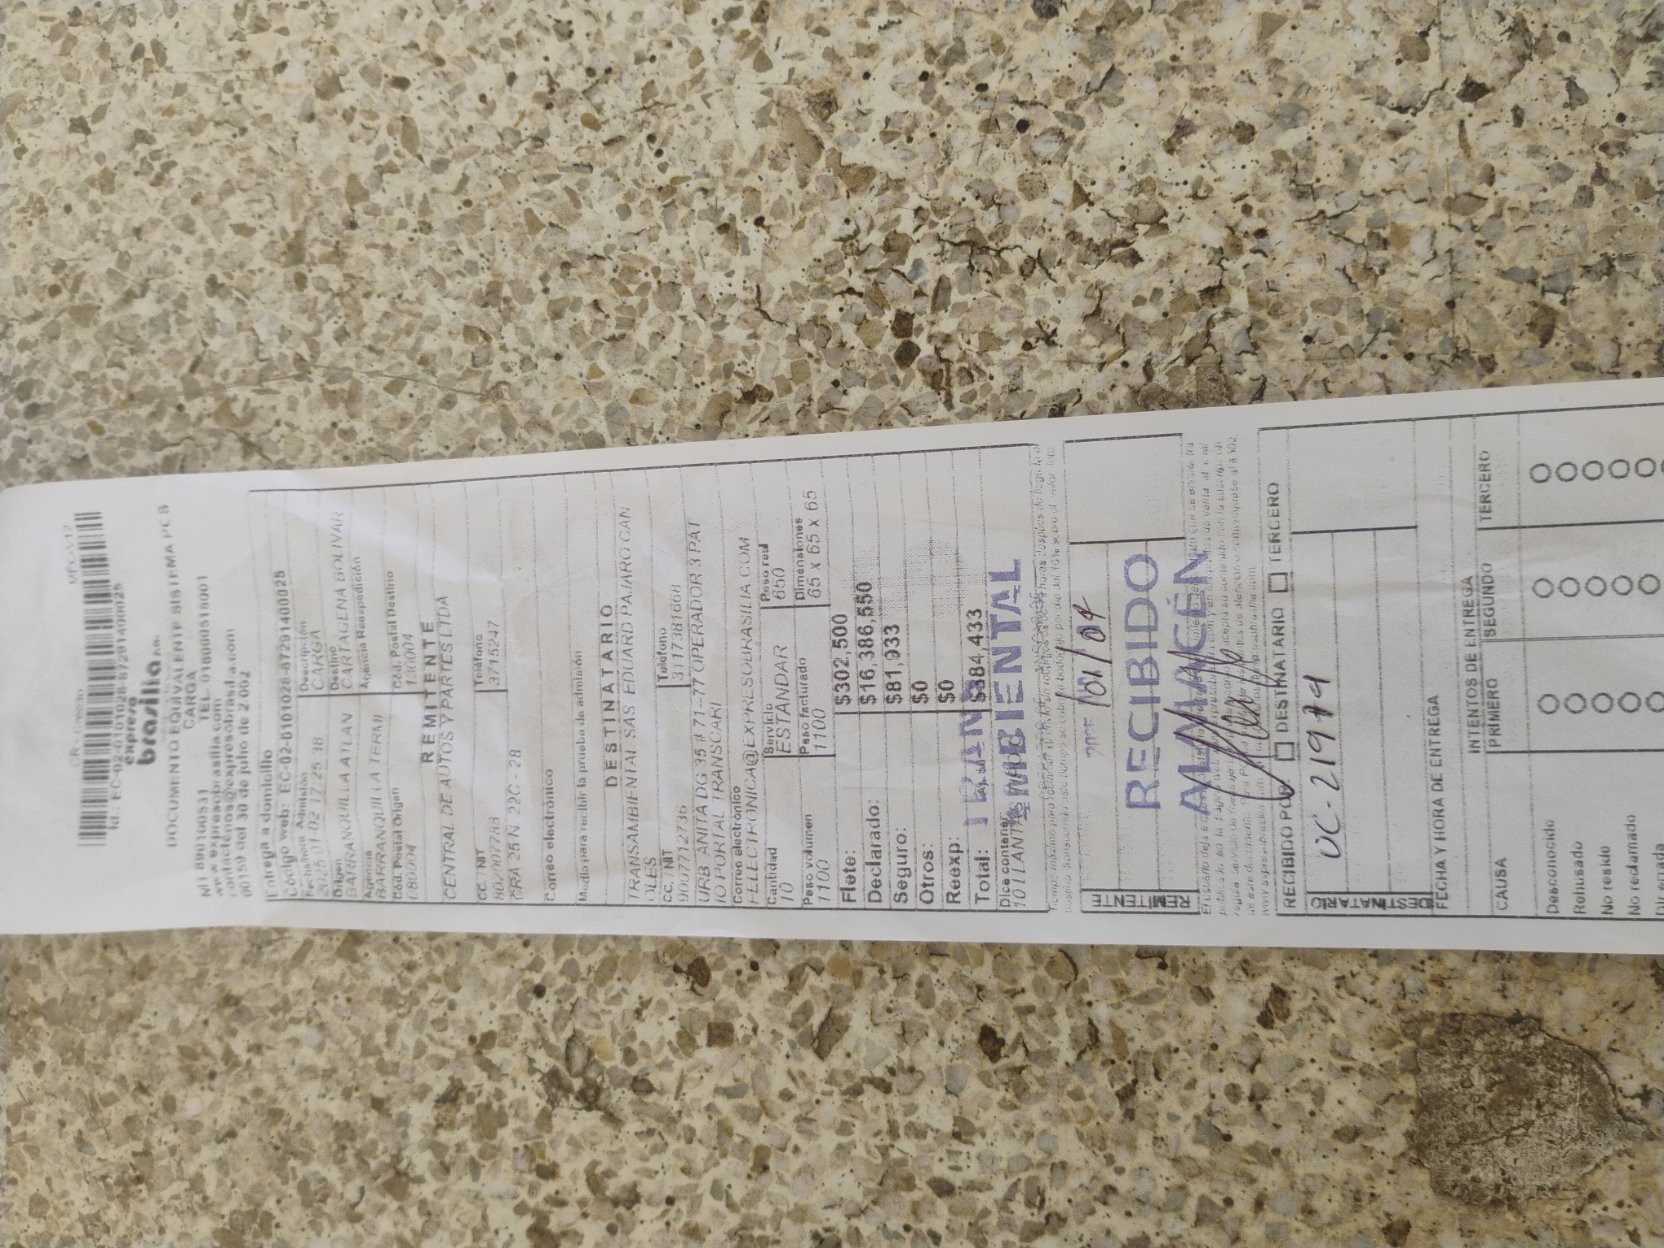 CR - Credito MFC-V12
Id. EC-02-0101028-87291400025
expreso
brasilia s.a.
DOCUMENTO EQUIVALENTE SISTEMA PCS
CARGA
NIT 890100531 TEL. 018000518001
www.expresobrasilia.com
contactenos@expresobrasilia.com
00159 del 30 de julio de 2.002
Entrega a domicilio
Código web: EC-02-0101028-8729140025
Fecha/Hora Admisión Descripción
2025 01 02 17:25:38 CARGA
Origen Destino
BARRANQUILLA ATLAN CARTAGENA BOLIVAR
Agencia Agencia Reexpedición
BARRANQUILLA TERMI
Cód. Postal Origen Cód. Postal Destino
080004 130004
REMITENTE
CENTRAL DE AUTOS Y PARTES LTDA
CC. / NIT Teléfono
802007788 3715247
CRA 25 N 22C - 28
Correo electrónico
Medio para recibir la prueba de admisión
DESTINATARIO
TRANSAMBIENTAL SAS EDUARD PAJARO CAN
OLES
CC. / NIT Teléfono
9007712736 3117381668
URB ANITA DG 35 # 71-77 OPERADOR 3 PAT
IO PORTAL TRANSCARI
Correo electrónico
FELECTRONICA@EXPRESOBRASILIA.COM
Cantidad Servicio Peso real
10 ESTÁNDAR 650
Peso volumen Peso facturado Dimensiones
1100 1100 65 x 65 x 65
Flete: $302,500
Declarado: $16,386,550
Seguro: $81,933
Otros: $0
Reexp: $0
Total: $384,433
Dice contener
10 LLANTAS
AMBIENTAL
RECIBIDO
ALMACÉN
REMITENTE
RECIBIDO POR: DESTINATARIO TERCERO
OC-21974
DESTINATARIO
FECHA Y HORA DE ENTREGA
INTENTOS DE ENTREGA
CAUSA PRIMERO SEGUNDO TERCERO
Desconocido
Rehusado
No reside
No reclamado
Dir. errada